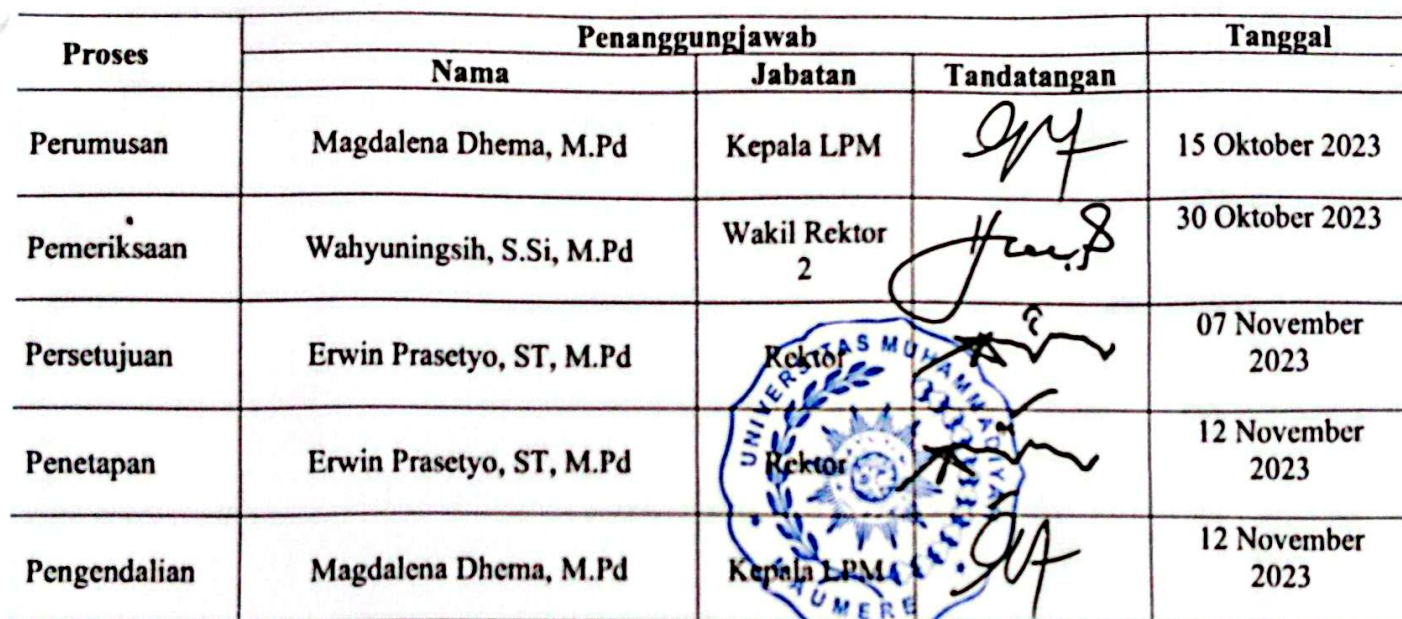 Proses
Penanggungjawab
Tanggal
Nama
Jabatan
Tandatangan
Perumusan
Magdalena Dhema, M.Pd
Kepala LPM
15 Oktober 2023
Pemeriksaan
Wahyuningsih, S.Si, M.Pd
Wakil Rektor
2
30 Oktober 2023
Persetujuan
Erwin Prasetyo, ST, M.Pd
Rektor
07 November
2023
Penetapan
Erwin Prasetyo, ST, M.Pd
Rektor
12 November
2023
Pengendalian
Magdalena Dhema, M.Pd
Kepala LPM
12 November
2023
UNIVERSITAS MUHAMMADIYAH